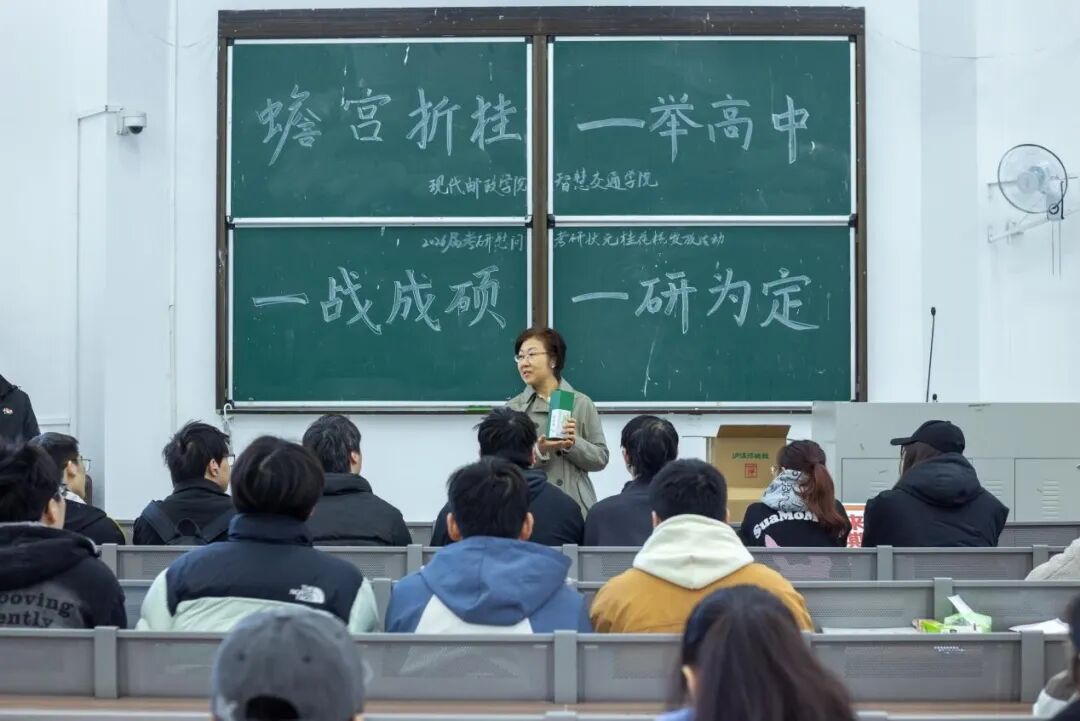 蟾宫折桂 一举高中
现代邮政学院 智慧交通学院
2026届考研慰问 考研状元桂花糕发放活动
一战成硕 一研为定
THE NORTH FACE
SuaMoM
poving
ently